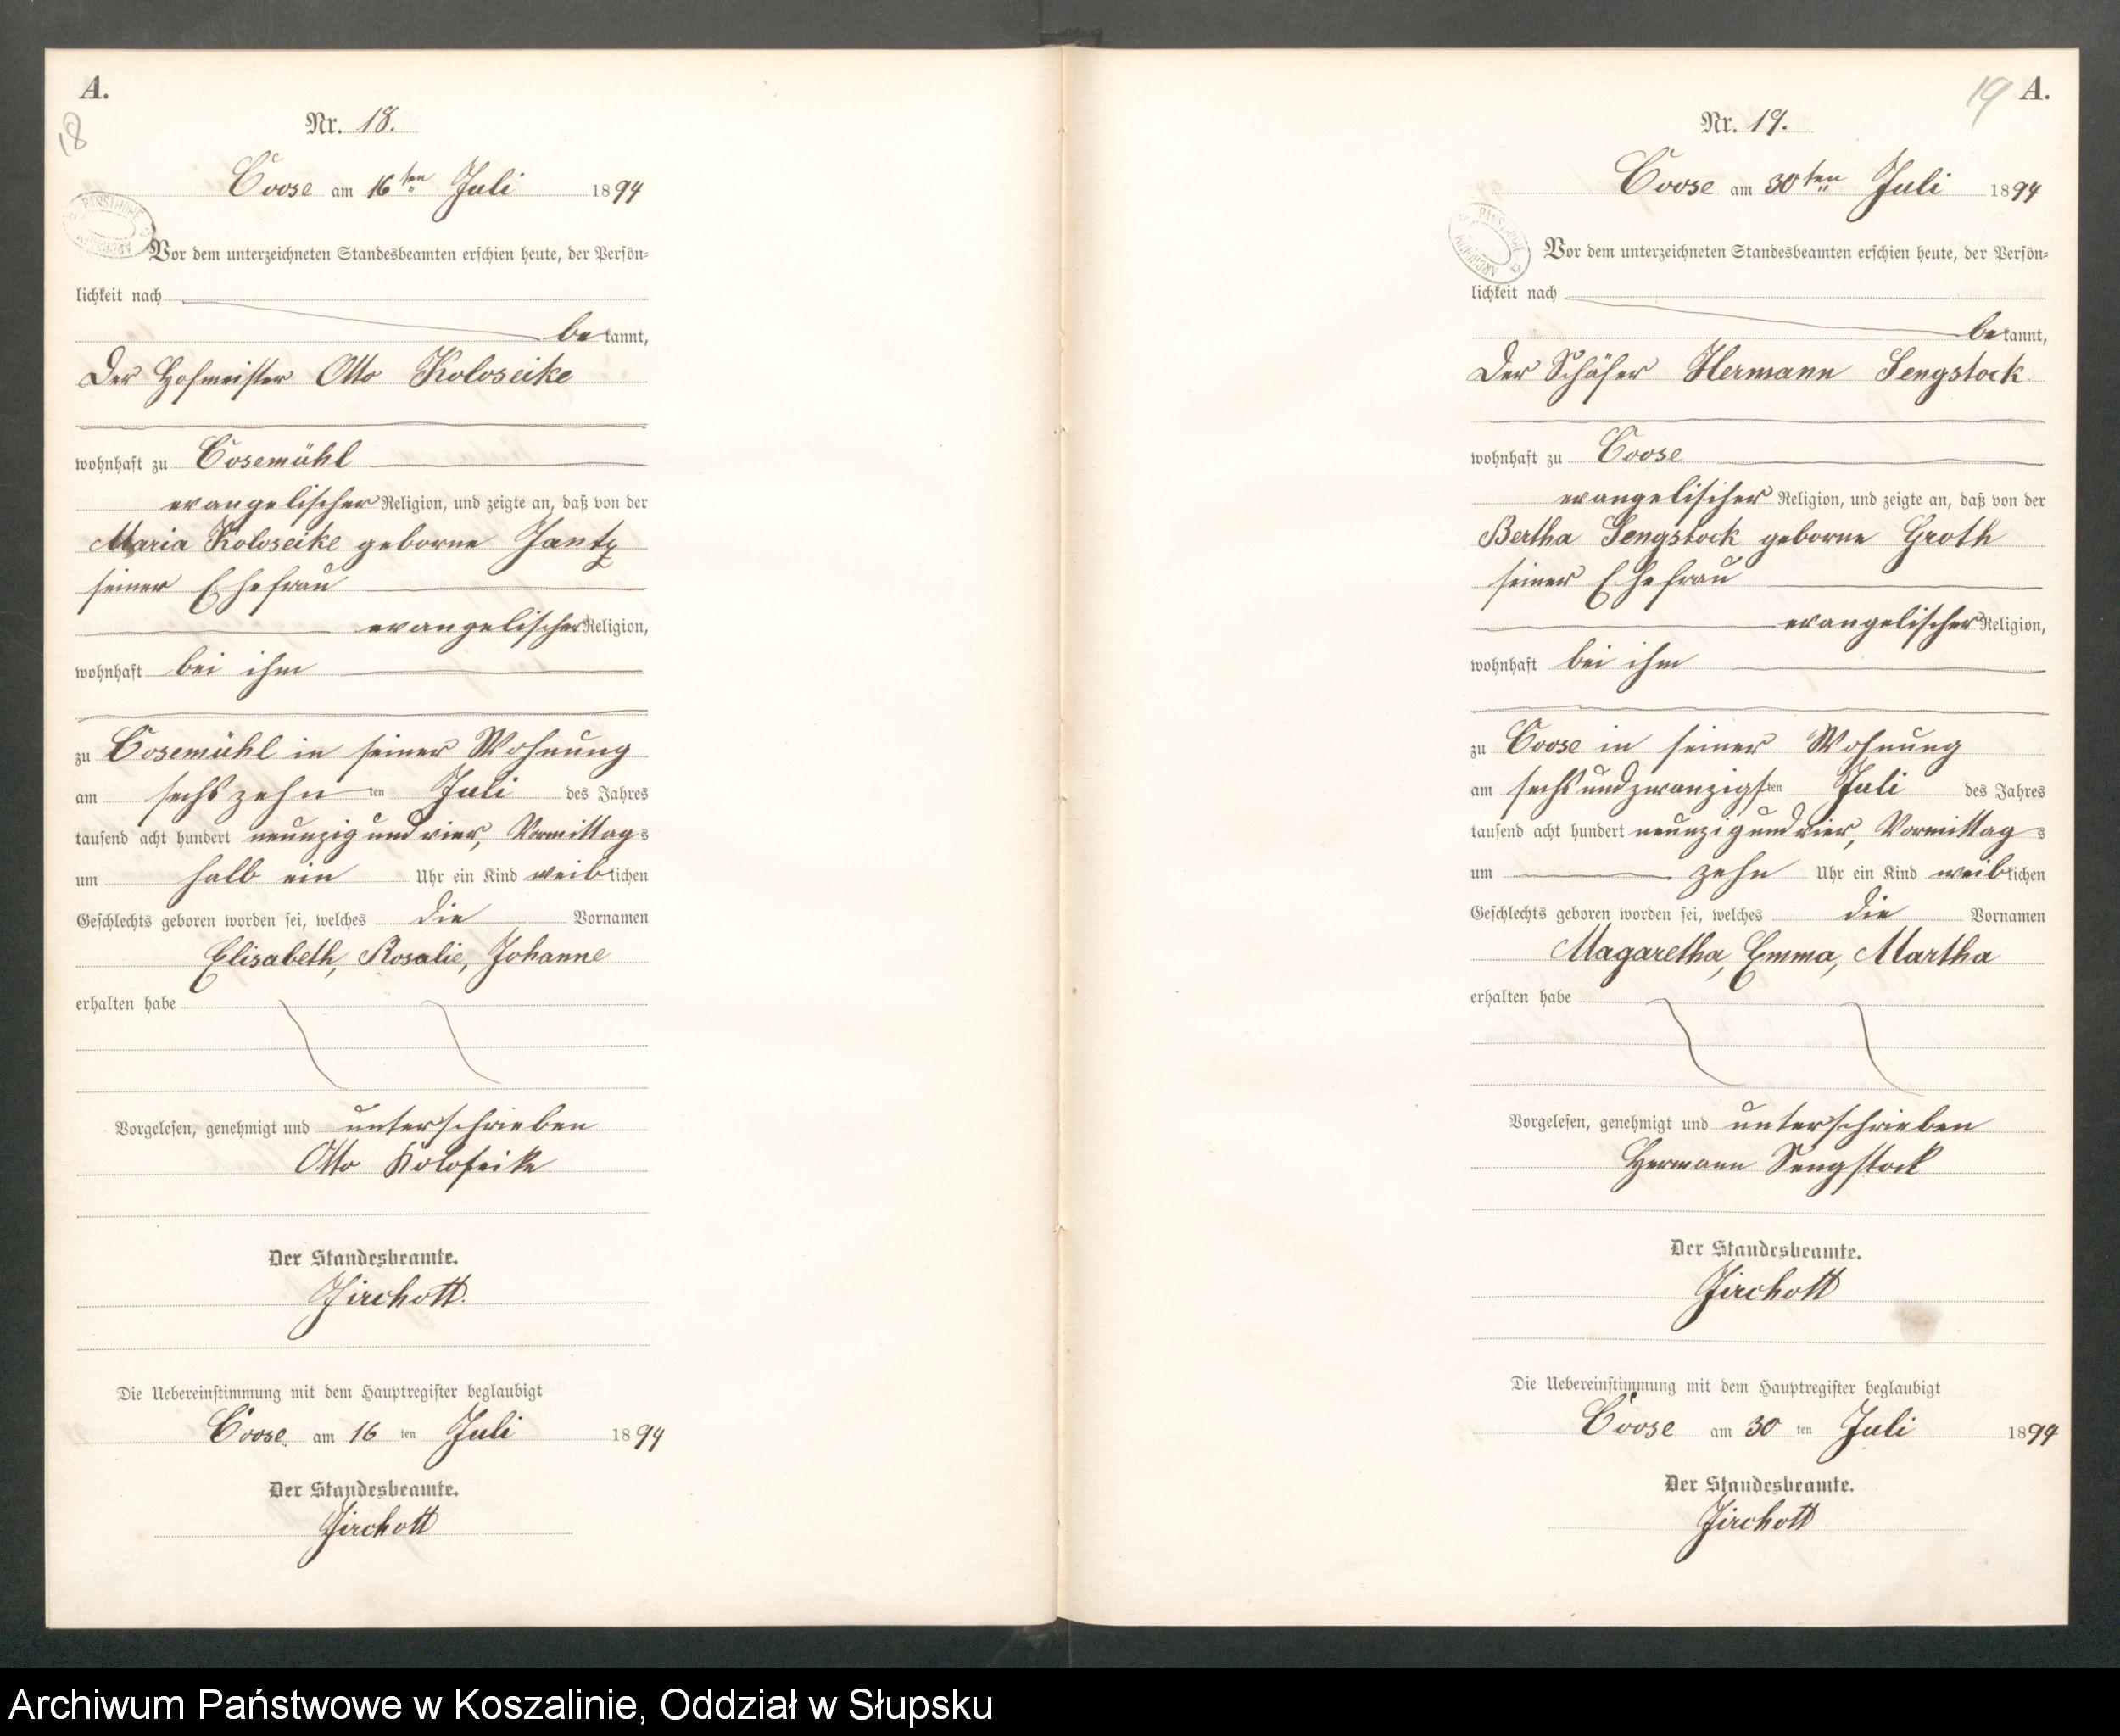 A.
18
Nr. 18.
Coose am 16ten Juli 1894
Vor dem unterzeichneten Standesbeamten erschien heute, der Persön-
lichkeit nach
bekannt,
Der Hofmeister Otto Koloseike
wohnhaft zu Cosemühl
evangelischer Religion, und zeigte an, daß von der
Maria Koloseike geborne Jantz
seiner Ehefrau
evangelischer Religion,
wohnhaft bei ihm
zu Cosemühl in seiner Wohnung
am sechszehnten Juli des Jahres
tausend acht hundert neunzig und vier, Vormittags
um halb ein Uhr ein Kind weiblichen
Geschlechts geboren worden sei, welches die Vornamen
Elisabeth, Rosalie, Johanne
erhalten habe
Vorgelesen, genehmigt und unterschrieben
Otto Koloseike
Der Standesbeamte.
Zirchott.
Die Uebereinstimmung mit dem Hauptregister beglaubigt
Coose am 16ten Juli 1894
Der Standesbeamte.
Zirchott
19 A.
Nr. 19.
Coose am 30ten Juli 1894
Vor dem unterzeichneten Standesbeamten erschien heute, der Persön-
lichkeit nach
bekannt,
Der Schäfer Hermann Sengstock
wohnhaft zu Coose
evangelischer Religion, und zeigte an, daß von der
Bertha Sengstock geborne Groth
seiner Ehefrau
evangelischer Religion,
wohnhaft bei ihm
zu Coose in seiner Wohnung
am sechsundzwanzigsten Juli des Jahres
tausend acht hundert neunzig und vier, Vormittags
um zehn Uhr ein Kind weiblichen
Geschlechts geboren worden sei, welches die Vornamen
Magaretha, Emma, Martha
erhalten habe
Vorgelesen, genehmigt und unterschrieben
Hermann Sengstock
Der Standesbeamte.
Zirchott
Die Uebereinstimmung mit dem Hauptregister beglaubigt
Coose am 30ten Juli 1894
Der Standesbeamte.
Zirchott
Archiwum Państwowe w Koszalinie, Oddział w Słupsku